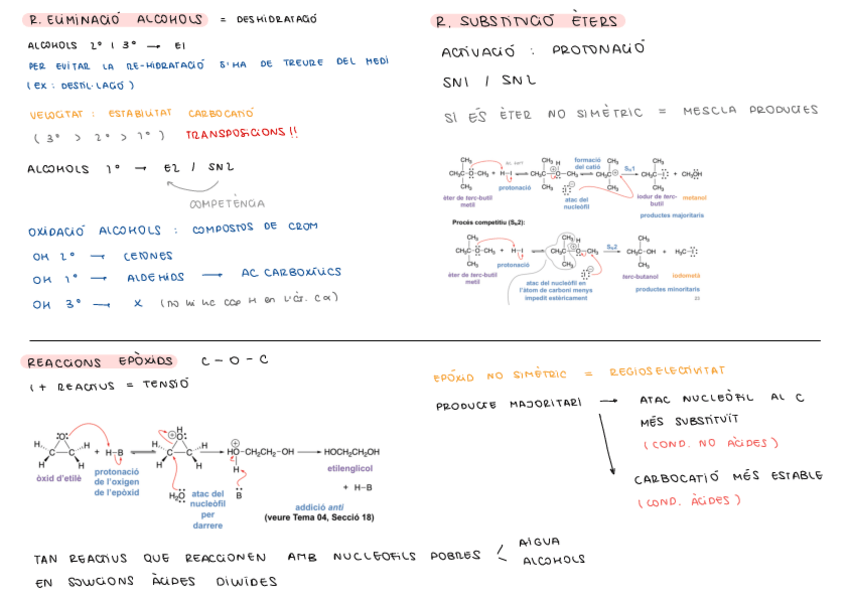 R. ELIMINACIÓ ALCOHOLS = DESHIDRATACIÓ
ALCOHOLS 2º I 3º → E1
PER EVITAR LA RE-HIDRATACIÓ S'HA DE TREURE DEL MEDI
(EX: DESTIL·LACIÓ)
VELOCITAT: ESTABILITAT CARBOCATIÓ
(3º > 2º > 1º) TRANSPOSICIONS!!
ALCOHOLS 1º → E2 / SN2
COMPETÈNCIA
OXIDACIÓ ALCOHOLS: COMPOSTOS DE CROM
OH 2º → CETONES
OH 1º → ALDEHIDS → AC CARBOXÍLICS
OH 3º → X (no hi ha cap H en l'àt. Cα)
R. SUBSTITUCIÓ ÈTERS
ACTIVACIÓ: PROTONACIÓ
SN1 / SN2
SI ÉS ÈTER NO SIMÈTRIC = MESCLA PRODUCTES
formació del catió
protonació
SN1
èter de terc-butil metil
atac del nucleòfil
iodur de terc-butil
metanol
productes majoritaris
Procés competitiu (SN2):
SN2
èter de terc-butil metil
protonació
atac del nucleòfil en l'àtom de carboni menys impedit estèricament
terc-butanol
iodometà
productes minoritaris
22
REACCIONS EPÒXIDS C-O-C
1+ REACTIUS = TENSIÓ
+ H-B
HO-CH2CH2-OH → HOCH2CH2OH
òxid d'etilè
protonació de l'oxigen de l'epòxid
H2O
atac del nucleòfil per darrere
B
etilenglicol
+ H-B
addició anti
(veure Tema 04, Secció 18)
EPÒXID NO SIMÈTRIC = REGIOSELECTIVITAT
PRODUCTE MAJORITARI → ATAC NUCLEÒFIL AL C
MÉS SUBSTITUÏT
(COND. NO ÀCIDES)
CARBOCATIÓ MÉS ESTABLE
(COND. ÀCIDES)
TAN REACTIUS QUE REACCIONEN AMB NUCLEÒFILS POBRES
AIGUA
ALCOHOLS
EN SOLUCIONS ÀCIDES DILUÏDES